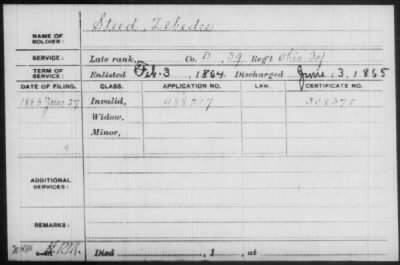 Steed, Zebedee
NAME OF SOLDIER:
SERVICE: Late rank, Co. B, 39 Reg't Ohio Inf
TERM OF SERVICE: Enlisted Feb. 3, 1864 Discharged June 13, 1865
DATE OF FILING. CLASS. APPLICATION NO. LAW. CERTIFICATE NO.
1883 June 27 Invalid,
Widow,
Minor,
ADDITIONAL SERVICES:
REMARKS:
Died , 1 , at